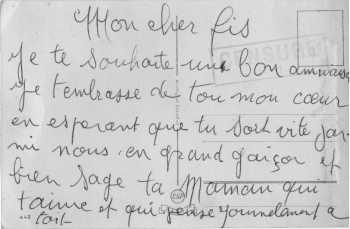 Mon cher fis
Je te souhaite une bon anniversaire
Je t'embrasse de tou mon cœur
en esperant que tu sort vite par-
mi nous. en grand gaiçor et
bien sage ta Maman qui
t'aime et qui pense journelament a
toit